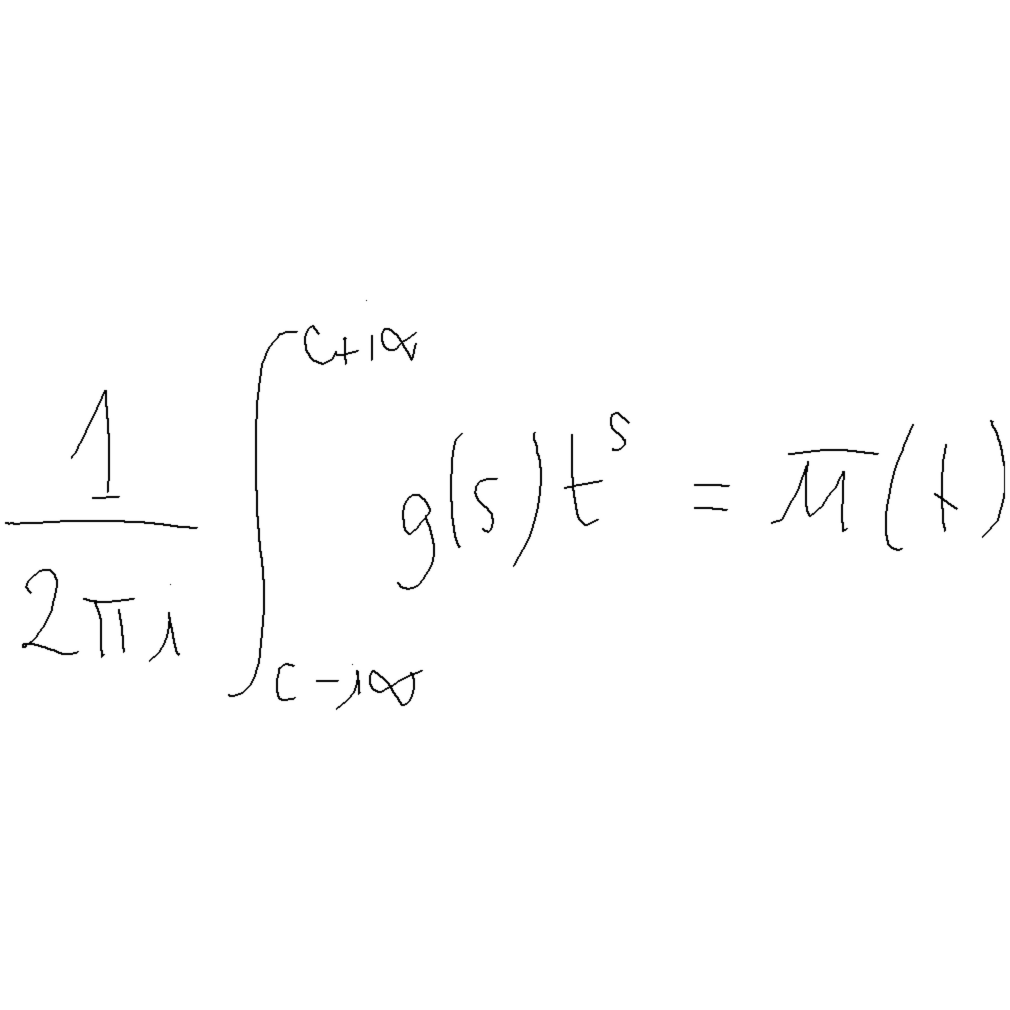 \frac{1}{2\pi i} \int_{c-i\infty}^{c+i\infty} g(s) t^s = \overline{M}(t)